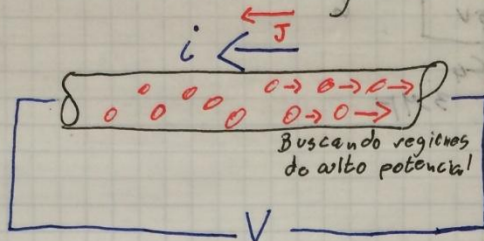 J
i
Buscando regiones
de alto potencial
V